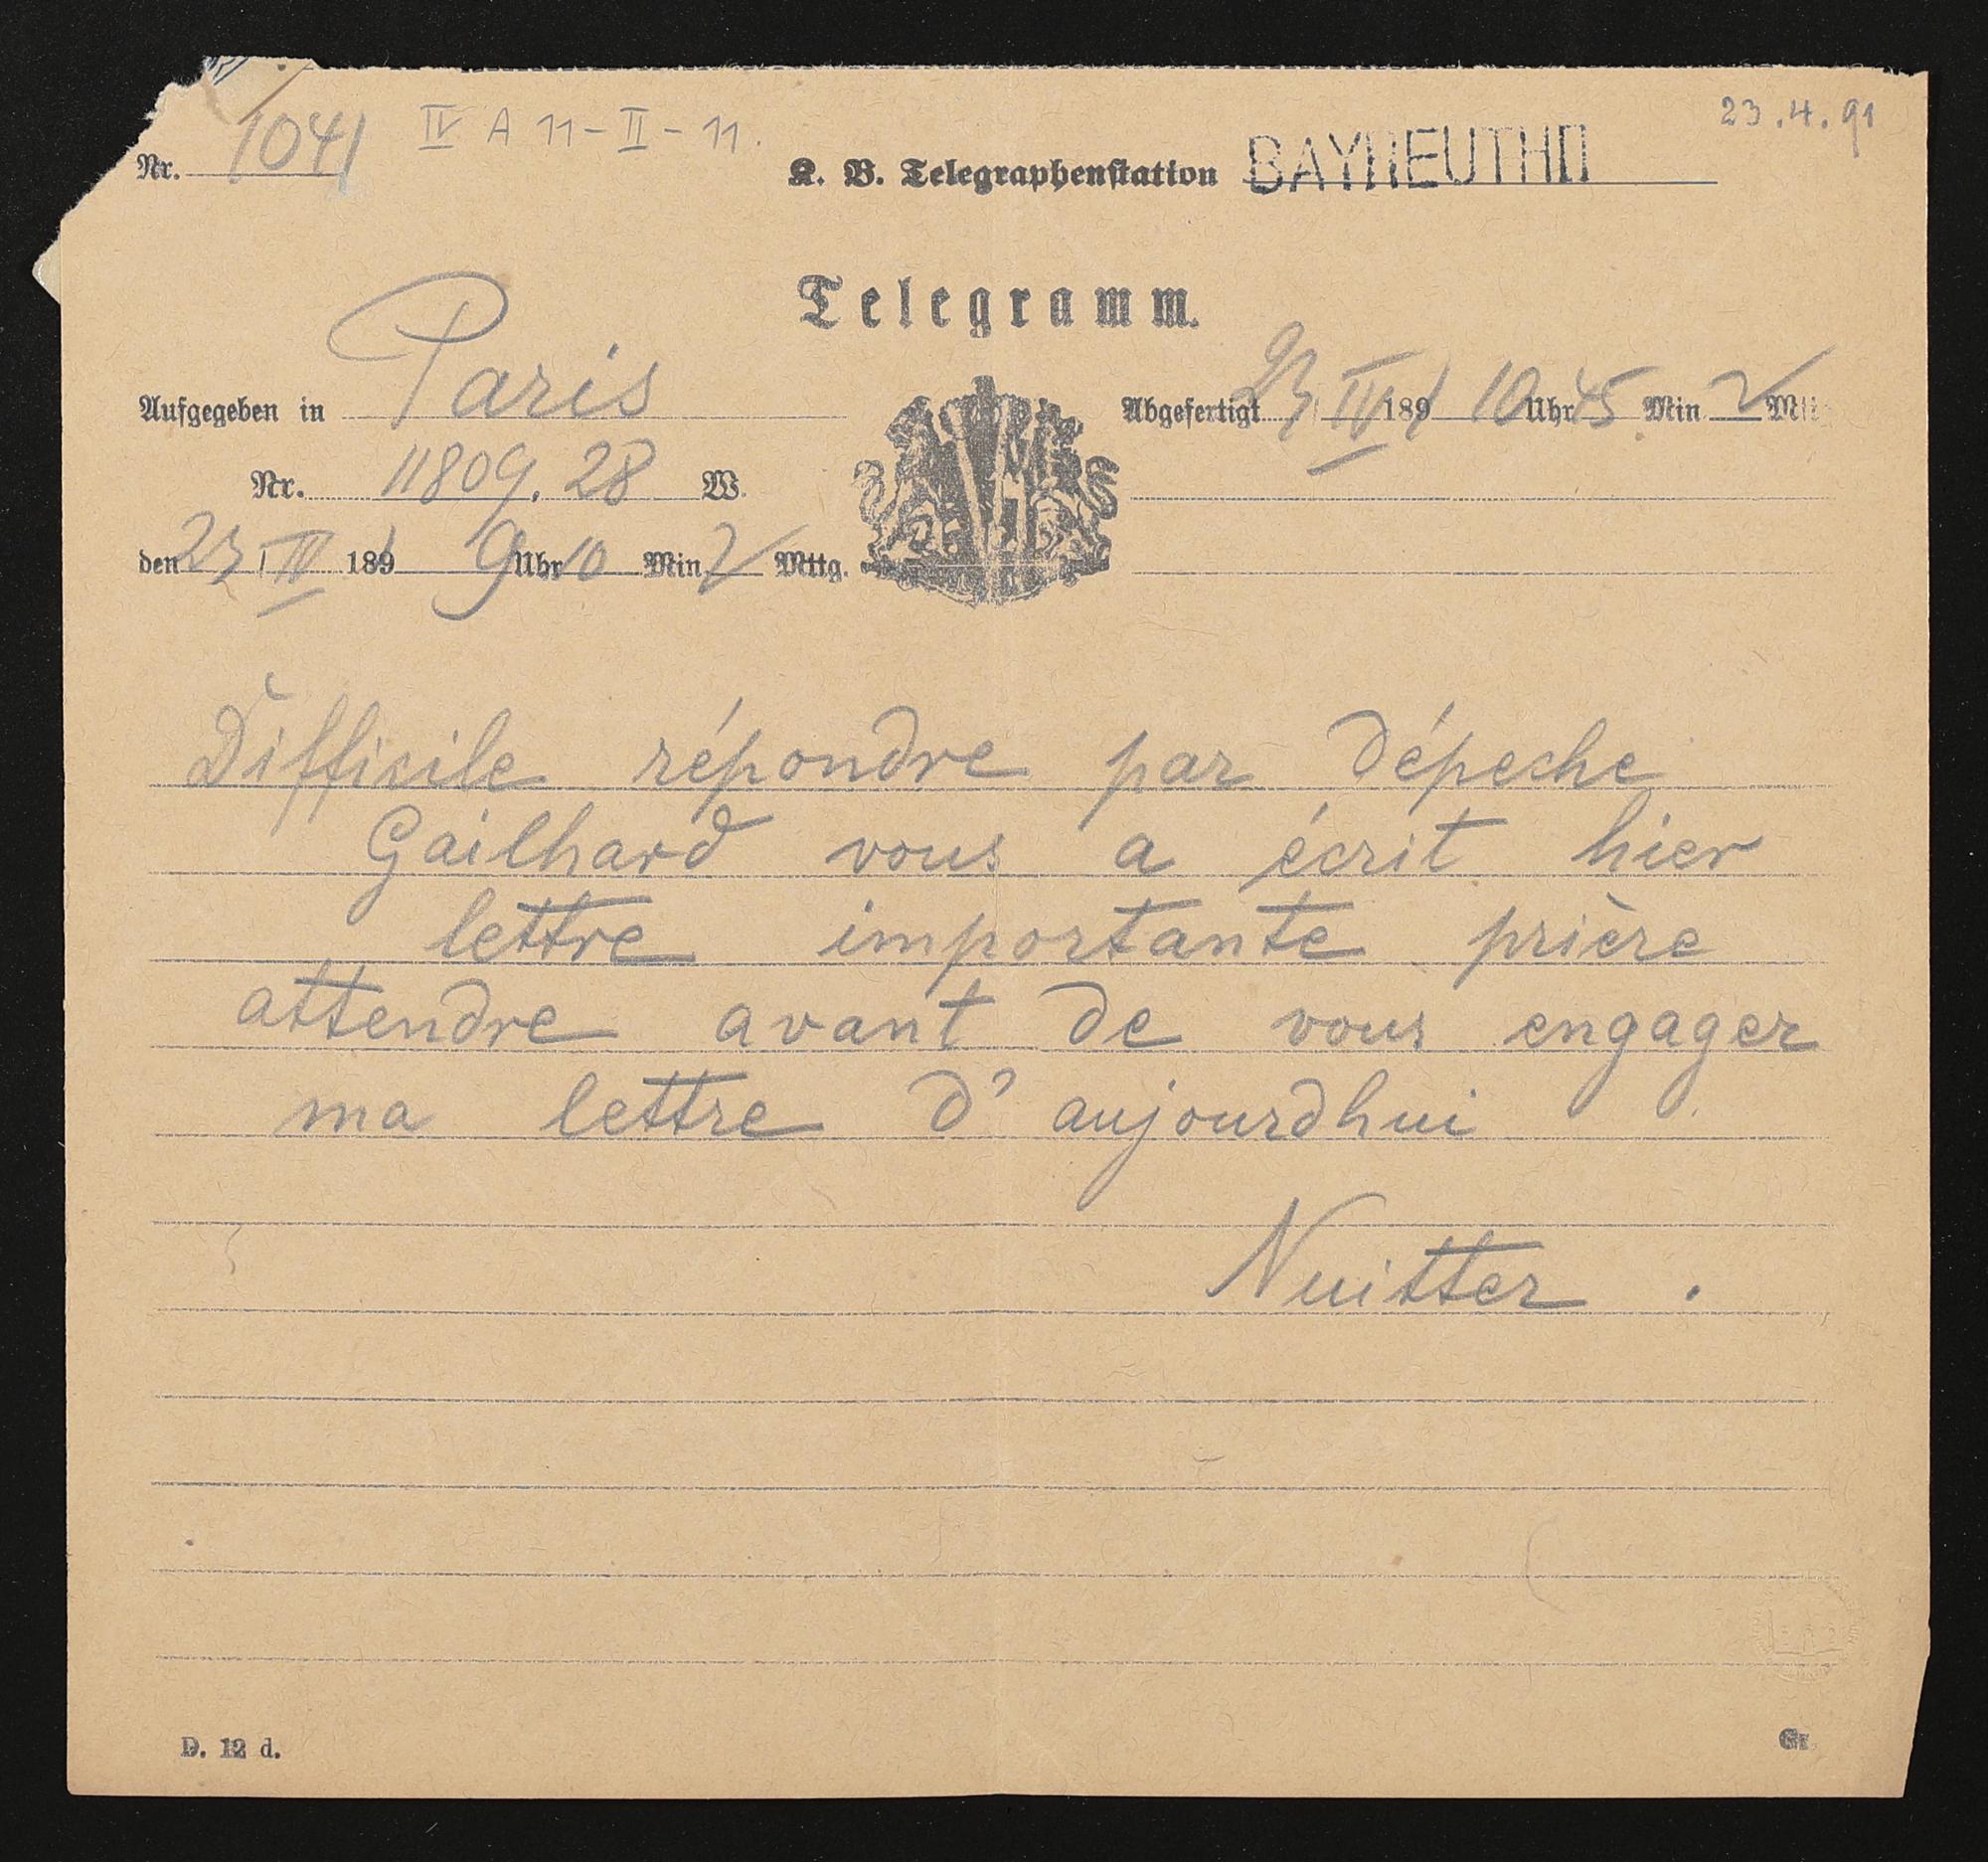 Nr. 1041 IV A 11-II-11. 23.4.91
K. B. Telegraphenstation BAYREUTH II
Telegramm.
Aufgegeben in Paris
Abgefertigt 23 IV 1891 10 Uhr 45 Min V M
Nr. 11809. 28 W.
den 23 IV 1891 9 Uhr 10 Min V Mttg.
Difficile répondre par dépeche
Gailhard vous a écrit hier
lettre importante prière
attendre avant de vous engager
ma lettre d'aujourdhui
Nuitter .
D. 12 d. Gr.